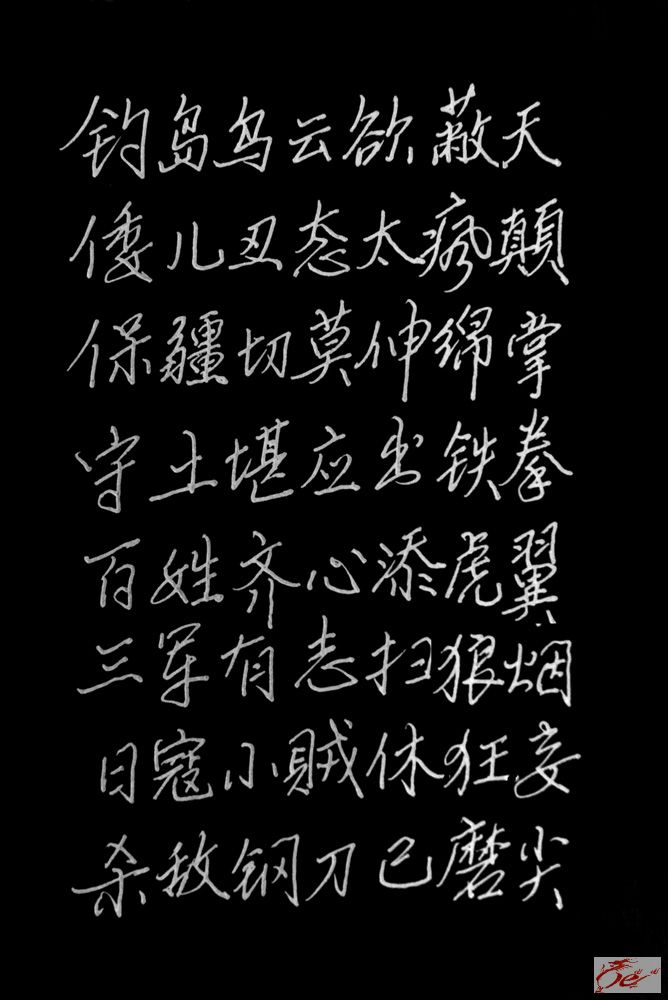 钓岛乌云欲蔽天
倭儿丑态太疯颠
保疆切莫伸绵掌
守土堪应出铁拳
百姓齐心添虎翼
三军有志扫狼烟
日寇小贼休狂妄
杀敌钢刀已磨尖